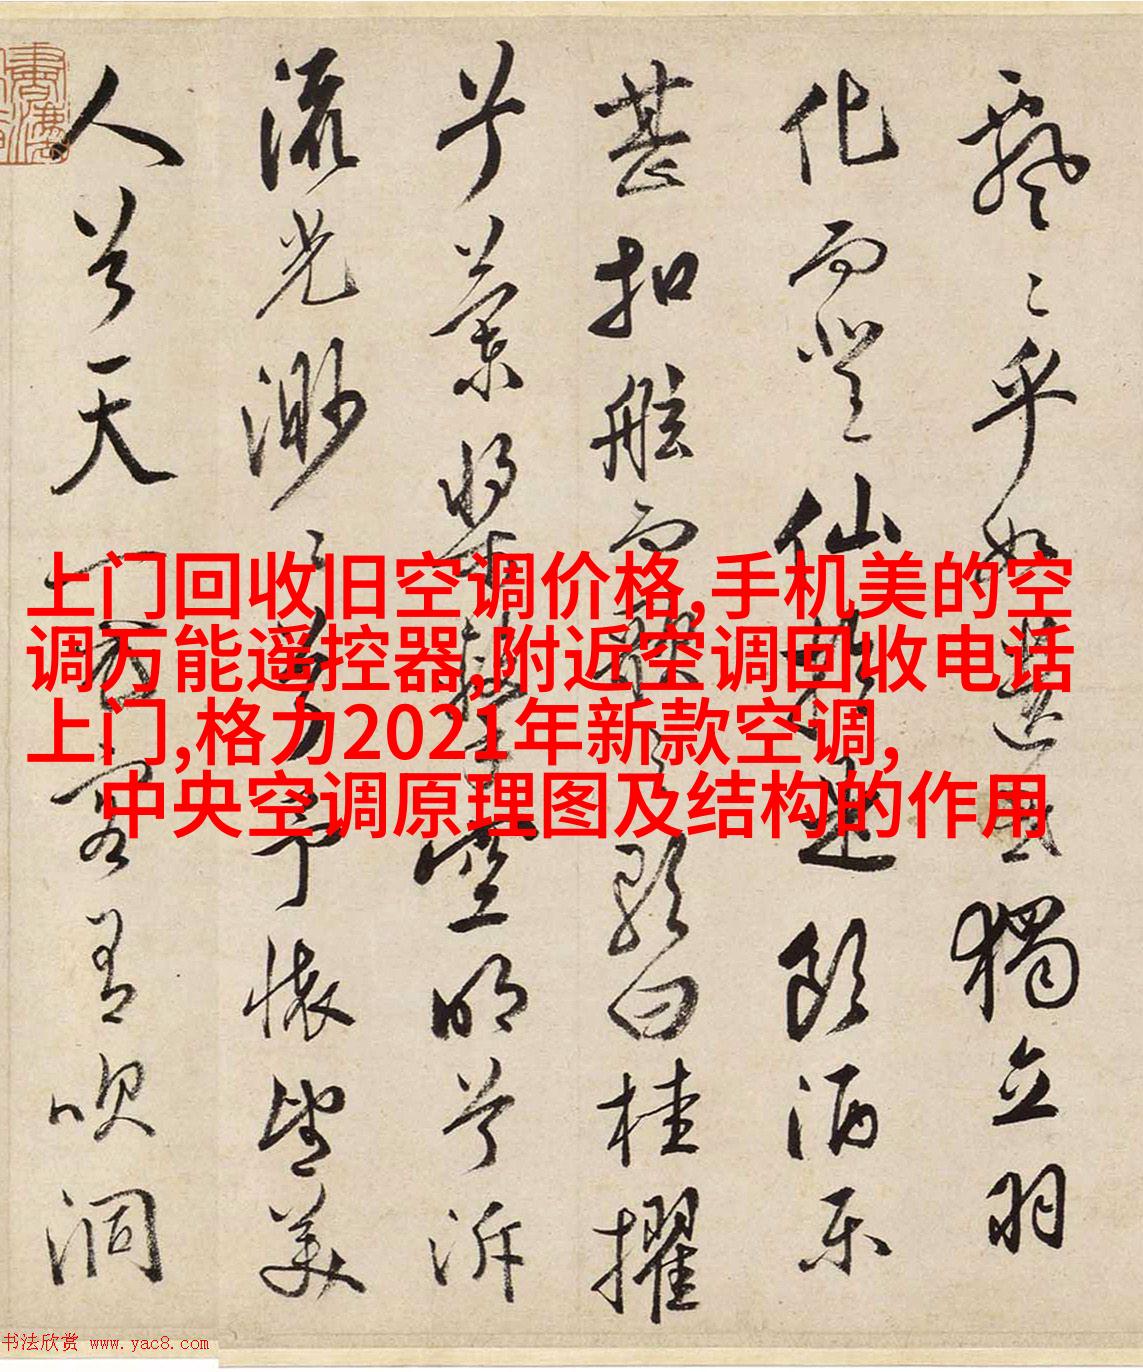 飄〻乎如遺世獨立羽
化而登仙於是飲酒乐
甚扣舷而歌之歌曰桂擢
兮蘭槳擊空明兮泝
流光渺〻兮予懷望美
人兮天一方客有吹洞
上门回收旧空调价格,手机美的空
调万能遥控器,附近空调回收电话
上门,格力2021年新款空调,
中央空调原理图及结构的作用
书法欣赏 www.yac8.com